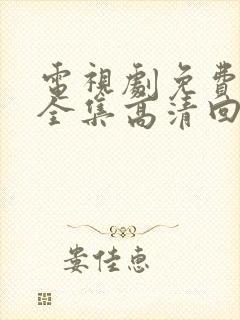 電視劇免費
全集高清回
娄佳惠